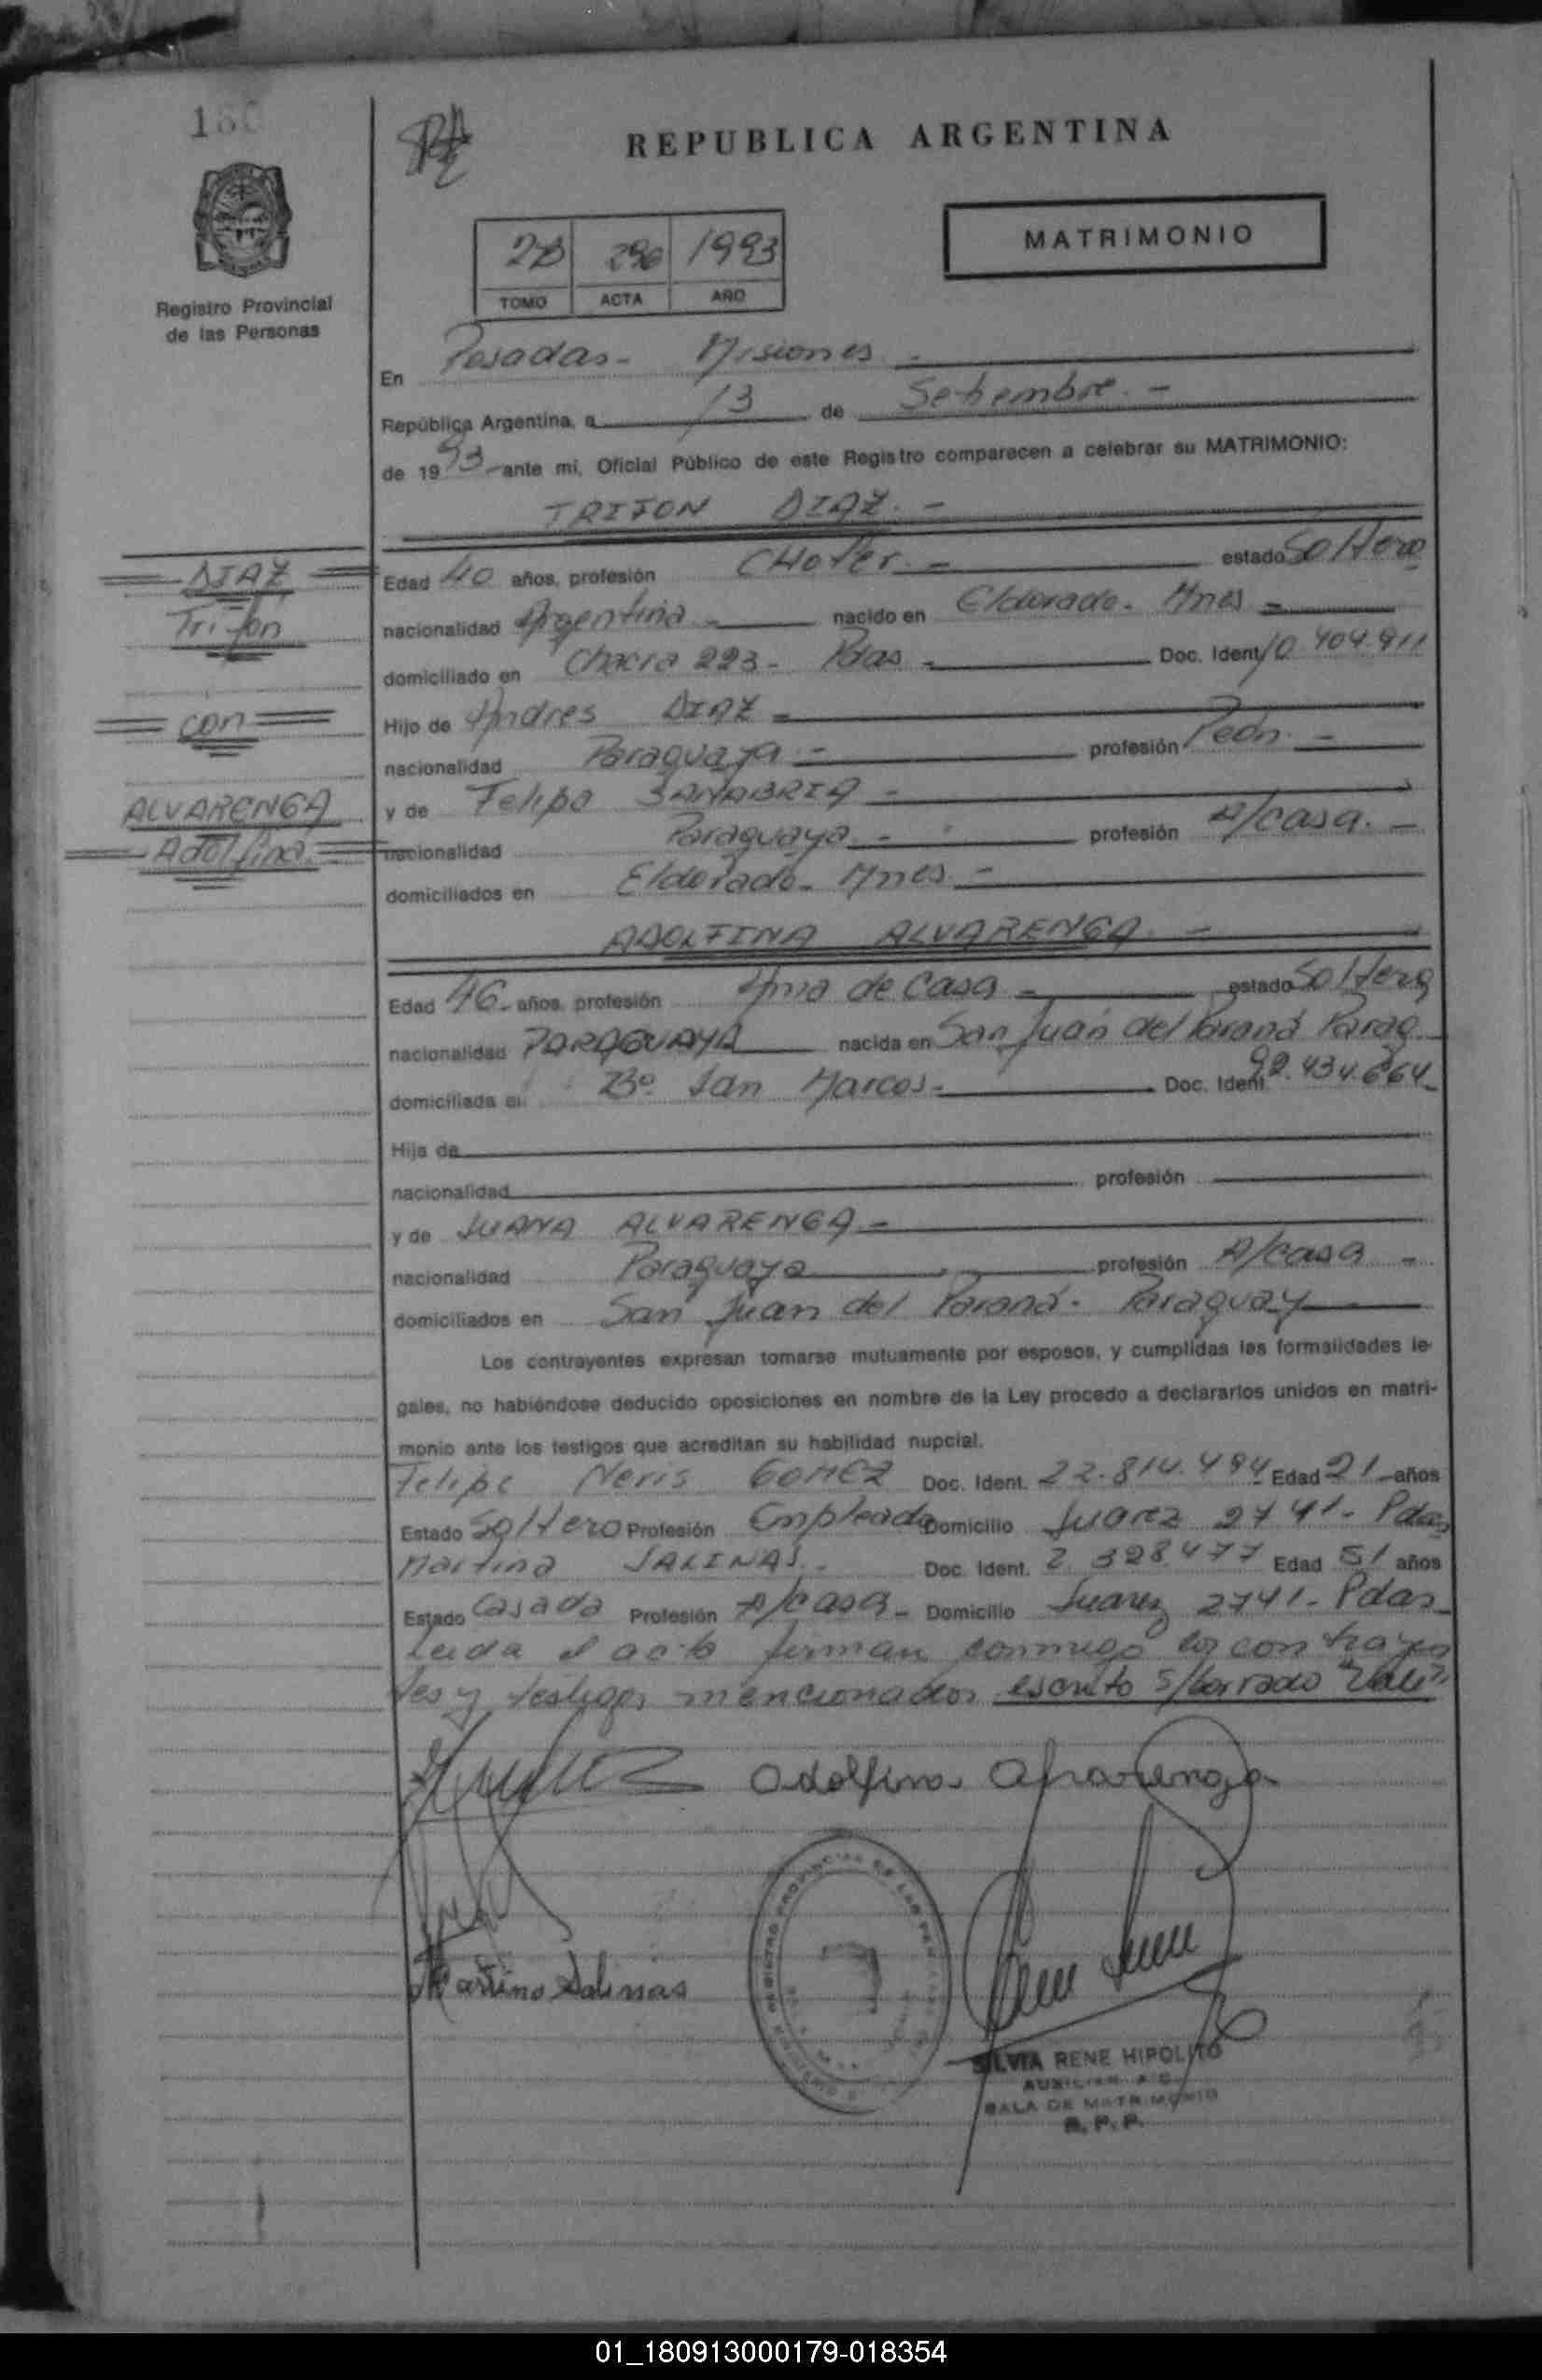 REPUBLICA ARGENTINA
Registro Provincial
de las Personas
1993
TOMO ACTA AÑO
MATRIMONIO
En Posadas - Misiones -
República Argentina, a 13 de Setiembre. -
de 1993 - ante mí, Oficial Público de este Registro comparecen a celebrar su MATRIMONIO:
TRIFON DIAZ. -
DIAZ
Trifón
con
ALVARENGA
Adolfina
Edad 40 años, profesión CHofer. - estado Soltero
nacionalidad Argentina - nacido en Eldorado - Mnes -
domiciliado en Chacra 223 - Pdas - Doc. Ident. 10.404.911
Hijo de Andres DIAZ -
nacionalidad Paraguaya - profesión Peón. -
y de Felipa SANABRIA -
nacionalidad Paraguaya - profesión A/casa. -
domiciliados en Eldorado - Mnes -
ADOLFINA ALVARENGA. -
Edad 46 - años, profesión Ama de Casa - estado Soltera
nacionalidad PARAGUAYA nacida en San Juan del Paraná Parag.
domiciliada en Bº San Marcos - Doc. Ident. 92.434.664 -
Hija de
nacionalidad profesión
y de JUANA ALVARENGA -
nacionalidad Paraguaya profesión A/casa -
domiciliados en San Juan del Paraná - Paraguay
Los contrayentes expresan tomarse mutuamente por esposos, y cumplidas las formalidades le-
gales, no habiéndose deducido oposiciones en nombre de la Ley procedo a declararlos unidos en matri-
monio ante los testigos que acreditan su habilidad nupcial.
Felipe Neris GOMEZ Doc. Ident. 22.814.494 Edad 21 - años
Estado Soltero Profesión Empleado Domicilio Juarez 2741 - Pdas
Martina SALINAS. Doc. Ident. 2.328.477 Edad 51 años
Estado Casada Profesión A/casa - Domicilio Juarez 2741 - Pdas -
Leida el acta firman conmigo los contrayen
tes y testigos mencionados escrito s/borrado "Vale"
Adolfina Alvarenga
Martina Salinas
SILVIA RENE HIPOLITO
AUXILIAR
SALA DE MATRIMONIO
R. P. P.
01_180913000179-018354